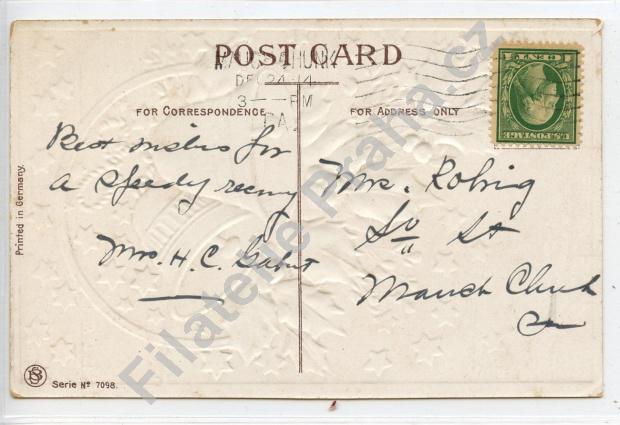 POST CARD
MAUCH CHUNK
DEC 24 14
3 — PM
PA.
U.S. POSTAGE
FOR CORRESPONDENCE
FOR ADDRESS ONLY
Best wishes for
a speedy
Mrs. H. C.
Mrs. Rohrig
So St
Mauch Chunk
Printed in Germany.
Serie Nº 7098.
Filatelie Praha.cz